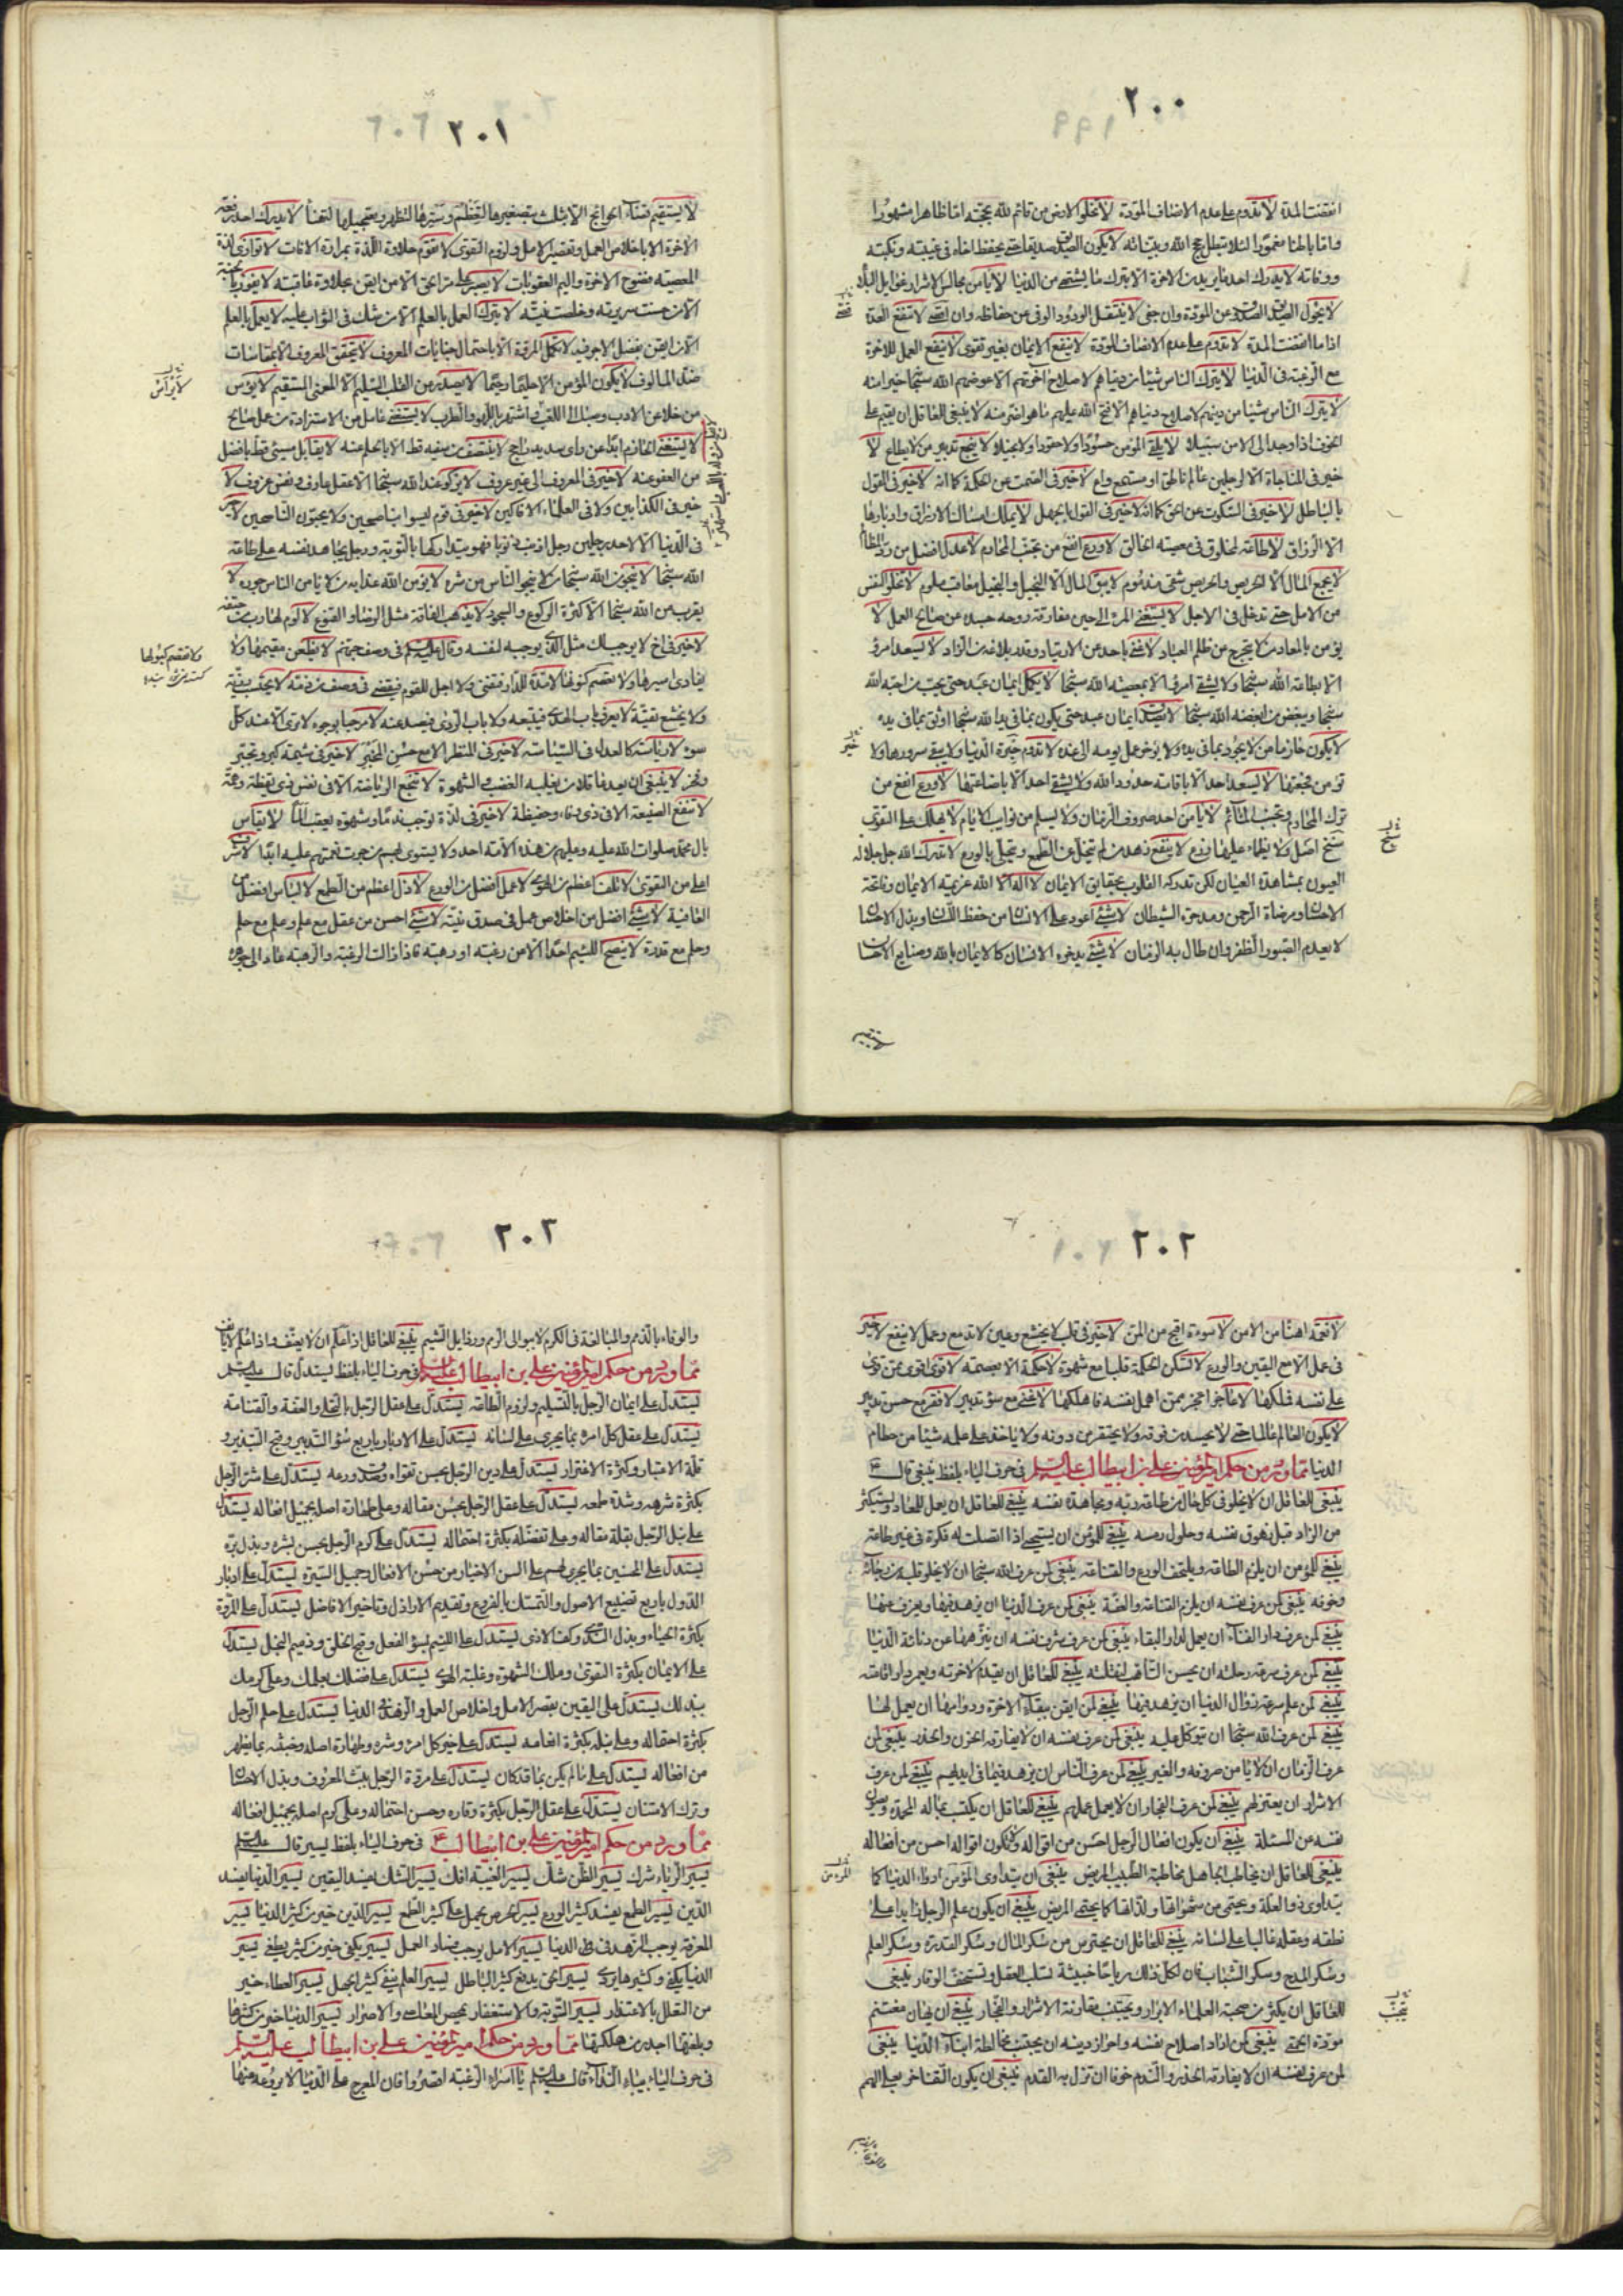 ٢٠٠
انقضت المدة لا تدوم على عدم الانصاف المودة لا تخلو الارض من قائم لله بحججه اما ظاهرا مشهورا
واما باطنا مغمورا لئلا تبطل حجج الله وبيناته لا يكون الصديق صديقا حتى يحفظ اخاه في غيبته ونكبته
ووفاته لا يدرك احد ما يريد من الاخرة الا بترك ما يشتهي من الدنيا لا يأمن مجالس الاشرار غوايل البلاء
لا يحول الصديق الصدوق عن المودة وان جفى لا ينتقل الودود الوفي عن حفاظه وان اقصي لا تنفع العدة
اذا ما انقضت المدة لا تدوم على عدم الانصاف المودة لا ينفع الايمان بغير تقوى لا ينفع العمل للاخرة
مع الرغبة في الدنيا لا يترك الناس شيئا من دنياهم لاصلاح اخرتهم الا عوضهم الله سبحانه خيرا منه
لا يترك الناس شيئا من دينهم لاصلاح دنياهم الا فتح الله عليهم ما هو اضر منه لا ينبغي للعاقل ان يقيم على
الخوف اذا وجد الى الامن سبيلا لا يلفى المؤمن حسودا ولا حقودا ولا بخيلا لا ينجع تدبير من لا يطاع لا
خير في المناجاة الا لرجلين عالم ناطق او مستمع واع لا خير في الصمت عن الحكمة كما انه لا خير في القول
بالباطل لا خير في السكوت عن الحق كما انه لا خير في القول بالجهل لا يملك امساك الارزاق وادرارها
الا الرزاق لا طاعة لمخلوق في معصية الخالق لا ورع انفع من تجنب المحارم لا عدل افضل من رد المظالم
لا يجمع المال الا الحريص والحريص شقي مذموم لا يبقى المال الا البخيل والبخيل معاقب ملوم لا تخلو النفس
من الامل حتى تدخل في الاجل لا يستغني المرء الى حين مفارقة روحه جسده عن صالح العمل لا
يؤمن بالمعاد من لا يتحرج من ظلم العباد لا غنى باحد عن الارتياد وقدر بلاغه من الزاد لا يسعد امرؤ
الا بطاعة الله سبحانه ولا يشقى امرؤ الا بمعصية الله سبحانه لا يكمل ايمان عبد حتى يحب من احبه الله
سبحانه ويبغض من ابغضه الله سبحانه لا يصدق ايمان عبد حتى يكون بما في يد الله سبحانه اوثق بما في يده
لا يكون حازما من لا يجود بما في يده ولا يؤخر عمل يومه الى غده لا تدوم حبرة الدنيا ولا يبقى سرورها ولا
تؤمن فجعتها لا يسعد احد الا باقامة حدود الله ولا يشقى احد الا باضاعتها لا ورع انفع من
ترك المحارم وتجنب المآثم لا يأمن احد صروف الزمان ولا يسلم من نوايب الايام لا يهلك على التقوى
سنخ اصل ولا يظمأ عليها زرع لا ينفع زهد من لم يتخل عن الطمع ويتحلى بالورع لا تدرك الله جل جلاله
العيون بمشاهدة العيان لكن تدركه القلوب بحقايق الايمان لا اله الا الله عزيمة الايمان وفاتحة
الاحسان ومرضاة الرحمن ومدحرة الشيطان لا شيء اعود على الانسان من حفظ اللسان وبذل الاحسان
لا يعدم الصبور الظفر وان طال به الزمان لا شيء يدخره الانسان كالايمان بالله وصنايع الاحسان
لا يستقيم
٢٠١
لا يستقيم قضاء الحوائج الا بثلث بتصغيرها لتعظم وسترها لتظهر وتعجيلها لتهنأ لا يدرك احد رفعة
الاخرة الا باخلاص العمل وتقصير الامل ولزوم التقوى لا تقوم حلاوة اللذة بمرارة الافات لا توازي لذة
المعصية فضوح الاخرة واليم العقوبات لا يصبر على مر الحق الا من ايقن بحلاوة عاقبته لا يفوز بالجنة
الا من حسنت سريرته وخلصت نيته لا يترك العمل بالعلم الا من شك في الثواب عليه لا يعمل بالعلم
الا من ايقن بفضل الاجر فيه لا تكمل المروة الا باحتمال جنايات المعروف لا يتحقق المعروف الا بمقاسات
ضد المالوف لا يكون المؤمن الا حليما رحيما لا يصدر عن القلب السليم الا المعنى المستقيم لا يرؤس
من خلا عن الادب وصبا الى اللعب اشتهر باللهو والطرب لا يستغني عامل من الاستزادة من عمل صالح
لا يستغني الحازم ابدا عن راى سديد راجح لا ينتصف من سفيه قط الا بالحلم عنه لا يقابل مسيئ قط بافضل
من العفو عنه لا خير في المعروف الى غير عروف لا يزكو عند الله سبحانه الا عقل عارف ونفس عزوف لا
خير في الكذابين ولا في العلماء الافاكين لا خير في قوم ليسوا بناصحين ولا يحبون الناصحين لا خير
في الدنيا الا لاحد رجلين رجل اذنب ذنوبا فهو يتداركها بالتوبة ورجل يجاهد نفسه على طاعة
الله سبحانه لا ينجو من الله سبحانه من لا ينجو الناس من شره لا يؤمن الله عذابه من لا يامن الناس جوره لا
يقرب من الله سبحانه الا كثرة الركوع والسجود لا يذهب الفاقة مثل الرضا والقنوع لا لوم لهارب من حتفه
لا خير في اخ لا يوجب لك مثل الذي يوجبه لنفسه وقال عليه السلم في وصف جهنم لا يظعن مقيمها ولا
يفادى اسيرها ولا تفصم كبولها لا مدة للدار فتفنى ولا اجل للقوم فيقضى في وصف من ذمه لا يحتسب رزية
ولا يخشع تقية لا يعرف باب الهدى فيتبعه ولا باب الردى فيصد عنه لا مرحبا بوجوه لا ترى الا عند كل
سوء لا رياسة كالعدل في السياسة لا خير في المنظر الا مع حسن المخبر لا خير في شيمة كبر وتجبر
وفخر لا ينبغي ان يعد عاقلا من يغلبه الغضب والشهوة لا تنجع الرياضة الا في نفس ذي يقظة وهمة
لا تنفع الصنيعة الا في ذي وفاء وحفيظة لا خير في لذة توجب ندما وشهوة يعقب الما لا يقاس
بال محمد صلوات الله عليه وعليهم من هذه الامة احد ولا يستوى بهم من جرت نعمتهم عليه ابدا لا شرف
اعلى من التقوى لا تلف اعظم من الهوى لا عمل افضل من الورع لا ذل اعظم من الطمع لا لباس افضل من
العافية لا شيء افضل من اخلاص عمل في صدق نية لا شيء احسن من عقل مع علم وعلم مع حلم
وحلم مع قدرة لا ينصح اللئيم احدا الا من رغبة او رهبة فاذا زالت الرغبة والرهبة عاد الى جوهره
٢٠٢
لا نعمة اهنأ من الامن لا سوءة اقبح من المن لا خير في قلب لا يخشع وعين لا تدمع وعمل لا ينفع لا خير
في عمل الا مع اليقين والورع لا تسكن الحكمة قلبا مع شهوة لا حكمة الا بعصمة لا قوي اقوى ممن قوى
على نفسه فملكها لا عاجز اعجز ممن اهمل نفسه فاهلكها لا غنى مع سوء تدبير لا فقر مع حسن تدبير
لا يكون العالم عالما حتى لا يحسد من فوقه ولا يحتقر من دونه ولا ياخذ على علمه شيئا من حطام
الدنيا مما ورد من حكم امير المؤمنين علي بن ابيطالب عليه السلم في حرف الياء بلفظ ينبغي قال ع
ينبغي للعاقل ان لا يخلو في كل حال من طاعة ربه ومجاهدة نفسه ينبغي للعاقل ان يعمل للمعاد ويستكثر
من الزاد قبل زهوق نفسه وحلول رمسه ينبغي للمؤمن ان يستحيى اذا اتصلت له فكرة في غير طاعة
ينبغي للمؤمن ان يلزم الطاعة ويلتحف الورع والقناعة ينبغي لمن عرف الله سبحانه ان لا يخلو قلبه من رجائه
وخوفه ينبغي لمن عرف نفسه ان يلزم القناعة والعفة ينبغي لمن عرف الدنيا ان يزهد فيها ويعزف عنها
ينبغي لمن عرف دار الفناء ان يعمل لدار البقاء ينبغي لمن عرف شرف نفسه ان ينزهها عن دنائة الدنيا
ينبغي لمن عرف سرعة رحلته ان يحسن التأهب لنقلته ينبغي للعاقل ان يقدم لاخرته ويعمر دار اقامته
ينبغي لمن علم سرعة زوال الدنيا ان يزهد فيها ينبغي لمن ايقن ببقاء الاخرة ودوامها ان يعمل لها
ينبغي لمن عرف الله سبحانه ان يتوكل عليه ينبغي لمن عرف نفسه ان لا يفارقه الحزن والحذر ينبغي لمن
عرف الزمان ان لا يأمن صروفه والغير ينبغي لمن عرف الناس ان يزهد فيما في ايديهم ينبغي لمن عرف
الاشرار ان يعتزلهم ينبغي لمن عرف الفجار ان لا يعمل عملهم ينبغي للعاقل ان يكتسب بماله المحمدة ويصون
نفسه عن المسئلة ينبغي ان يكون افعال الرجل احسن من اقواله ولا تكون اقواله احسن من افعاله
ينبغي للعاقل ان يخاطب الجاهل مخاطبة الطبيب المريض ينبغي ان يتداوى المؤمن ادواء الدنيا كما
يتداوى ذو العلة ويحتمى من شهواتها ولذاتها كما يحتمى المريض ينبغي ان يكون علم الرجل زايدا على
نطقه وعقله غالبا على لسانه ينبغي للعاقل ان يحترس من سكر المال وسكر القدرة وسكر العلم
وسكر المدح وسكر الشباب فان لكل ذلك رياحا خبيثة تسلب العقل وتستخف الوقار ينبغي
للعاقل ان يكثر من صحبة العلماء الابرار ويجتنب مقارنة الاشرار والفجار ينبغي ان يهان مغتنم
مودة الحمقى ينبغي لمن اراد اصلاح نفسه واحراز دينه ان يجتنب مخالطة ابناء الدنيا ينبغي
لمن عرف نفسه ان لا يفارقه الحذر والندم خوفا ان تزل به القدم ينبغي ان يكون التفاخر بعلى الهمم
٢٠٣
والوفاء بالذمم والمبالغة في الكرم لا ببوالى الرمم ورذايل الشيم ينبغي للعاقل اذا علم ان لا يعنف واذا علم لا يأنف
مما ورد من حكم امير المؤمنين علي بن ابيطالب عليه السلم في حرف الياء بلفظ يستدل قال عليه السلم
يستدل على ايمان الرجل بالتسليم ولزوم الطاعة يستدل على عقل الرجل بالتحلي والعفة والقناعة
يستدل على عقل كل امرء بما يجرى على لسانه يستدل على الادبار باربع سوء التدبير وقبح التبذير و
قلة الاعتبار وكثرة الاغترار يستدل على دين الرجل بحسن تقواه وصدق ورعه يستدل على شر الرجل
بكثرة شرهه وشدة طمعه يستدل على عقل الرجل بحسن مقاله وعلى طهارة اصله بجميل افعاله يستدل
على نبل الرجل بقلة مقاله وعلى تفضله بكثرة احتماله يستدل على كرم الرجل بحسن بشره وبذل بره
يستدل على المحسنين بما يجرى لهم على السن الاخيار من حسن الافعال وجميل السيرة يستدل على ادبار
الدول باربع تضييع الاصول والتمسك بالفروع وتقديم الاراذل وتاخير الافاضل يستدل على المروة
بكثرة الحياء وبذل الندى وكف الاذى يستدل على اللئيم بسوء الفعل وقبح الخلق وذميم البخل يستدل
على الايمان بكثرة التقوى وملك الشهوة وغلبة الهوى يستدل على فضلك بعملك وعلى كرمك
ببذلك يستدل على اليقين بقصر الامل واخلاص العمل والزهد في الدنيا يستدل على حلم الرجل
بكثرة احتماله وعلى نبله بكثرة انعامه يستدل على خير كل امرء وشره وطهارة اصله وخبثه بما يظهر
من افعاله يستدل على ما لم يكن بما قد كان يستدل على مروة الرجل ببث المعروف وبذل الاحسان
وترك الامتنان يستدل على عقل الرجل بكثرة وقاره وحسن احتماله وعلى كرم اصله بجميل افعاله
مما ورد من حكم امير المؤمنين علي بن ابيطالب ع في حرف الياء بلفظ يسير قال عليه السلم
يسير الرياء شرك يسير الظن شك يسير الغيبة افك يسير الشك يفسد اليقين يسير الدنيا يفسد
الدين يسير الطمع يفسد كثير الورع يسير الحرص يحمل على كثير الطمع يسير الدين خير من كثير الدنيا يسير
المعرفة يوجب الزهد في الدنيا يسير الامل يوجب فساد العمل يسير يكفي خير من كثير يطغى يسير
الدنيا يكفي وكثيرها يردى يسير الحق يدفع كثير الباطل يسير العلم ينفي كثير الجهل يسير العطاء خير
من التعلل بالاعتذار يسير التوبة والاستغفار يمحص المعاصي والاصرار يسير الدنيا خير من كثيرها
وبلغتها اجدر من هلكتها مما ورد من حكم امير المؤمنين علي بن ابيطالب عليه السلم
في حرف الياء بياء النداء قال عليه السلم يا اسراء الرغبة اقصروا فان المعرج على الدنيا لا يروعه منها